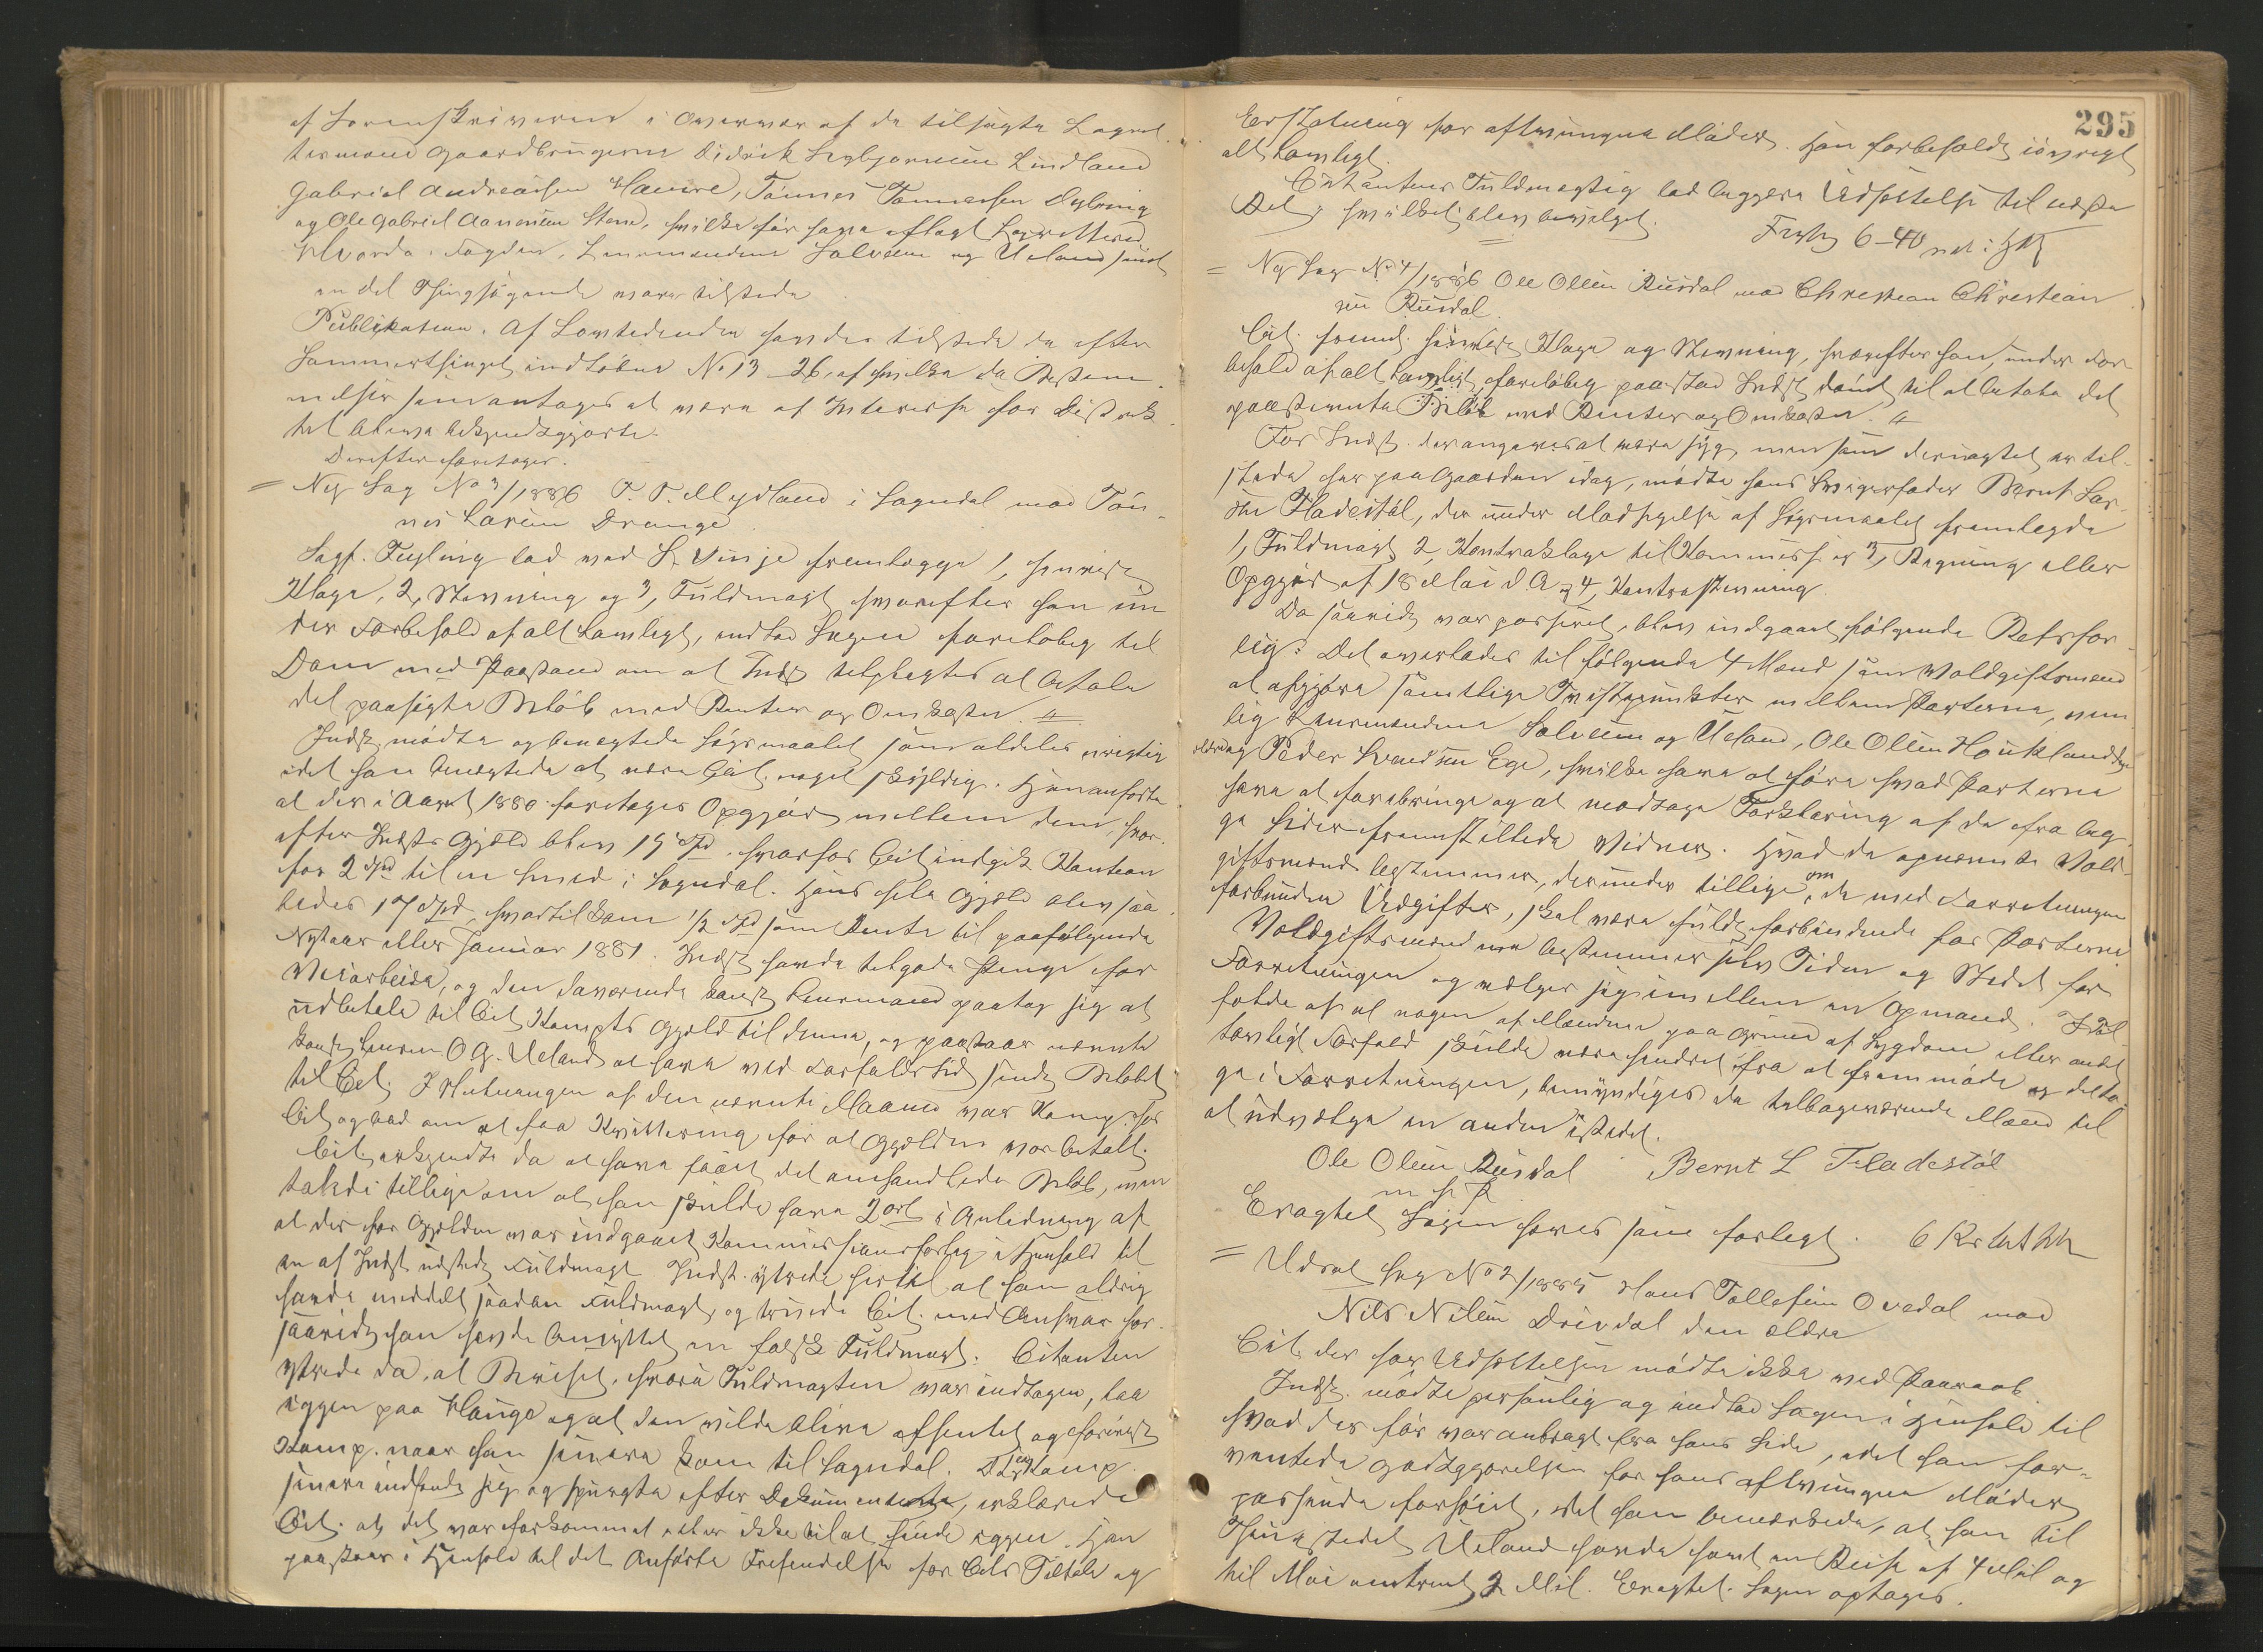 af Sorenskriveren i Overvær af de tilsagte Lagret-
temænd Gaardbrugerne Didrik Sigbjørnsen Lindland
Gabriel Andreassen Haavre, Tønnes Tønnessen Dybing
og Ole Gabriel Aanensen Stene, hvilke før have aflagt Lagretteed
Hvorda Fogden, Lensmændene Salvesen og Ueland samt
en del Thingsøgende vare tilstede
Publikation. Af Lovtidenden havdes tilstede de efter
Sommerthinget indløbne No 13-26, af hvilke de Bestem-
melser som antages at være af Interesse for Distrik-
tet bleve bekjendtgjorte.
Derefter foretoges.
= Ny Sag No 3/1886 T. T. Mydland i Sogndal mod Tøn-
nes Larsen Drange
Sagf. Fugling lod ved S. Vinje fremlægge 1, henvist
Klage, 2, Stevning og 3, Fuldmagt hvorefter han un-
der Forbehold af alt Lovligt, indlod Sagen foreløbig til
Dom med Paastand om at Indst tilpligtes at betale
det paasøgte Beløb med Renter og Omkoster.
Indst. mødte og benegtede Søgsmaalet som aldeles urigtig
idet han benegtede at være Cit. noget skyldig. Han anførte
at der i Aaret 1880 foretoges Opgjør mellem dem, hvor-
efter Indsts Gjæld blev 15 Spd. hvorfor Cit indgik Kaution
for 2 Spd til en Smed i Sogndal. Hans hele Gjæld blev saa-
ledes 17 Spd, hvortil kom 1/2 Spd som Rente til paafølgende
Nytaar eller Januar 1881. Indst havde tilgode Penge for
Veiarbeide, og den daværende konst Lensmand paatog sig at
udbetale til Cit Kompts Gjæld til denne, og paastaar nævnte
konst Lensm O G. Ueland at have ved Forfaldstid sendt Beløbet
til Cit. I Slutningen af den nævnte Maaned var Komp. hos
Cit og bad om at faa Kvittering for at Gjælden var betalt.
Cit. erkjendte da at have faaet det omhandlede Beløb, men
talede tillige om at han skulde have 2 ort i Anledning af
at der for Gjælden var indgaaet Kommissionsforlig i Henhold til
en af Indst udstedt Fuldmagt Indst. ytrede hertil at han aldrig
havde meddelt saadan Fuldmagt, og truede Cit. med Ansvar for-
saavidt han havde benyttet en falsk Fuldmagt. Citanten
ytrede da, at Beviset, hvori Fuldmagten var indtagen, laa
igjen paa Hauge og at den vilde blive afhentet og forevist
Komp. naar han senere kom til Sogndal. Da Komp.
senere indfandt sig og spurgte efter Dokumentet, erklærede
Cit. at det var forkommet eller ikke til at finde igjen. Han
paastaar i Henhold til det Anførte Frifindelse for Cits Tiltale og
295
Erstatning for aftvungne Møder. Han forbeholdt iøvrigt
alt Lovligt.
Citantens Fuldmægtig lod begjære Udsættelse til næste
Ret, hvilket blev bevilget.
= Ny Sag No 4/1886 Ole Olsen Ruusdal mod Christian Christian-
sen Ruusdal.
Cit. freml. henvist Klage og Stevning, hvorefter han, under For-
behold af alt Lovligt, foreløbig paastod Indst dømt til at betale det
paastevnte Beløb med Renter og Omkoster.
For Indst. der angaves at være syg, men som dernægtet er til-
stede her paa Gaarden idag, mødte hans Svigerfader Bernt Lar-
sen Fladestøl, der under Modsigelse af Søgsmaalet fremlagde
1, Fuldmagt 2, Kontraklage til Kommiss. og 3, Regning eller
Opgjør af 18 Mai d A og 4, Kontrastevning.
Da saavidt var passeret, blev indgaaet følgende Retsfor-
lig: Det overlades til følgende 4 Mænd som Voldgiftsmænd
at afgjøre samtlige Tvistepunkter mellem Parterne, nem-
lig Lensmændene Salvesen og Ueland, Ole Olsen Houkland den
ældre og Peder Svendsen Ege, hvilke have at høre hvad Parterne
have at forebringe og at modtage Forklaring af de fra beg-
ge Sider fremstillede Vidner. Hvad de opnævnte Vold-
giftsmænd bestemmer, derunder tillige om de med Forretningen
forbundne Udgifter, skal være fuldt forbindende for Parterne
Voldgiftsmændene bestemmer selv Tiden og Stedet for
Forretningen og vælger sig imellem en Opmand. I Til-
fælde af at nogen af Mændene paa Grund af Sygdom eller andet
lovligt Forfald skulde være hindret fra at fremmøde og delta-
ge i Forretningen, bemyndiges de tilbageværende Mænd til
at udvælge en anden istedet.
Ole Olsen Rusdal Bernt L Fladestøl
m f P
Eragtet Sagen hæves som forligt.
= Udsat Sag No 2/1885 Hans Tollefsen Ovedal mod
Nils Nilsen Drivdal den ældre
Cit. der har Udsættelsen mødte ikke ved Paaraab
Indst. mødte personlig og indlod Sagen i Henhold til
hvad der før var anbragt fra hans Side, idet han for-
ventede Godtgjørelse for hans aftvungne Møder
passende forhøiet, idet han bemærkede, at han til
Thingstedet Ueland havde havt en Reise af 4 Mil og
til Moi omtrent 2 Mil. Eragtet. Sagen optages.